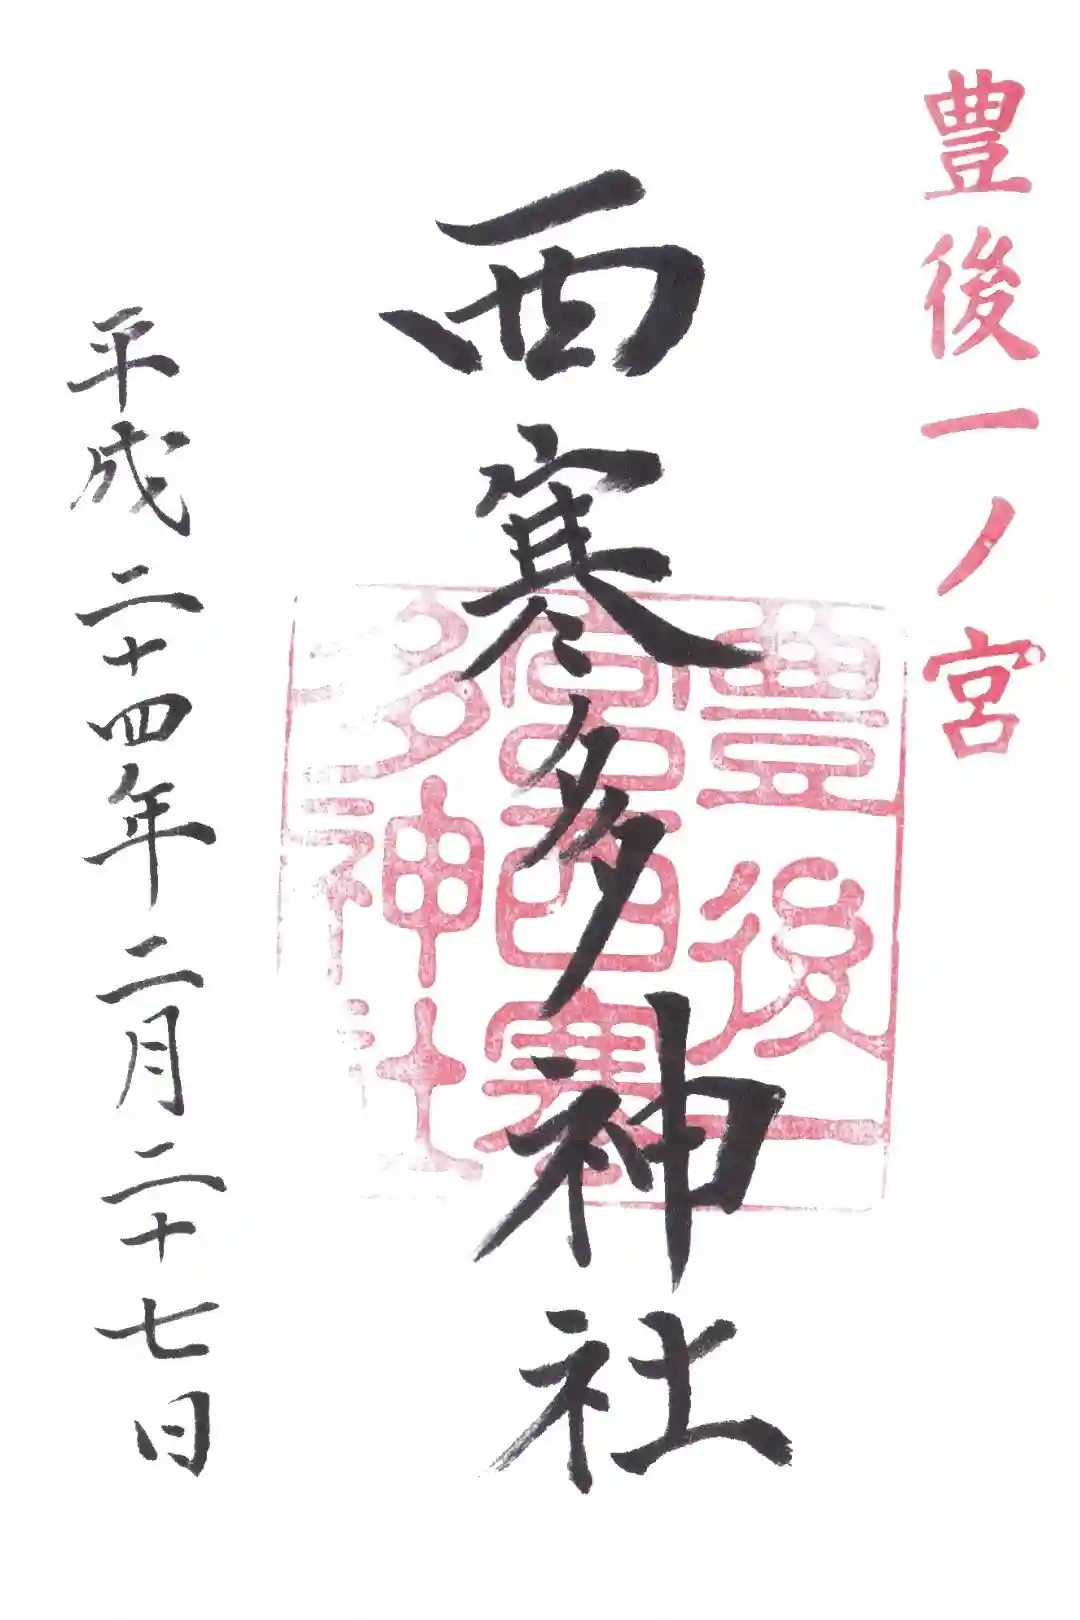 豊後一ノ宮
西寒多神社
豊後一
宮西寒
多神社
平成二十四年二月二十七日